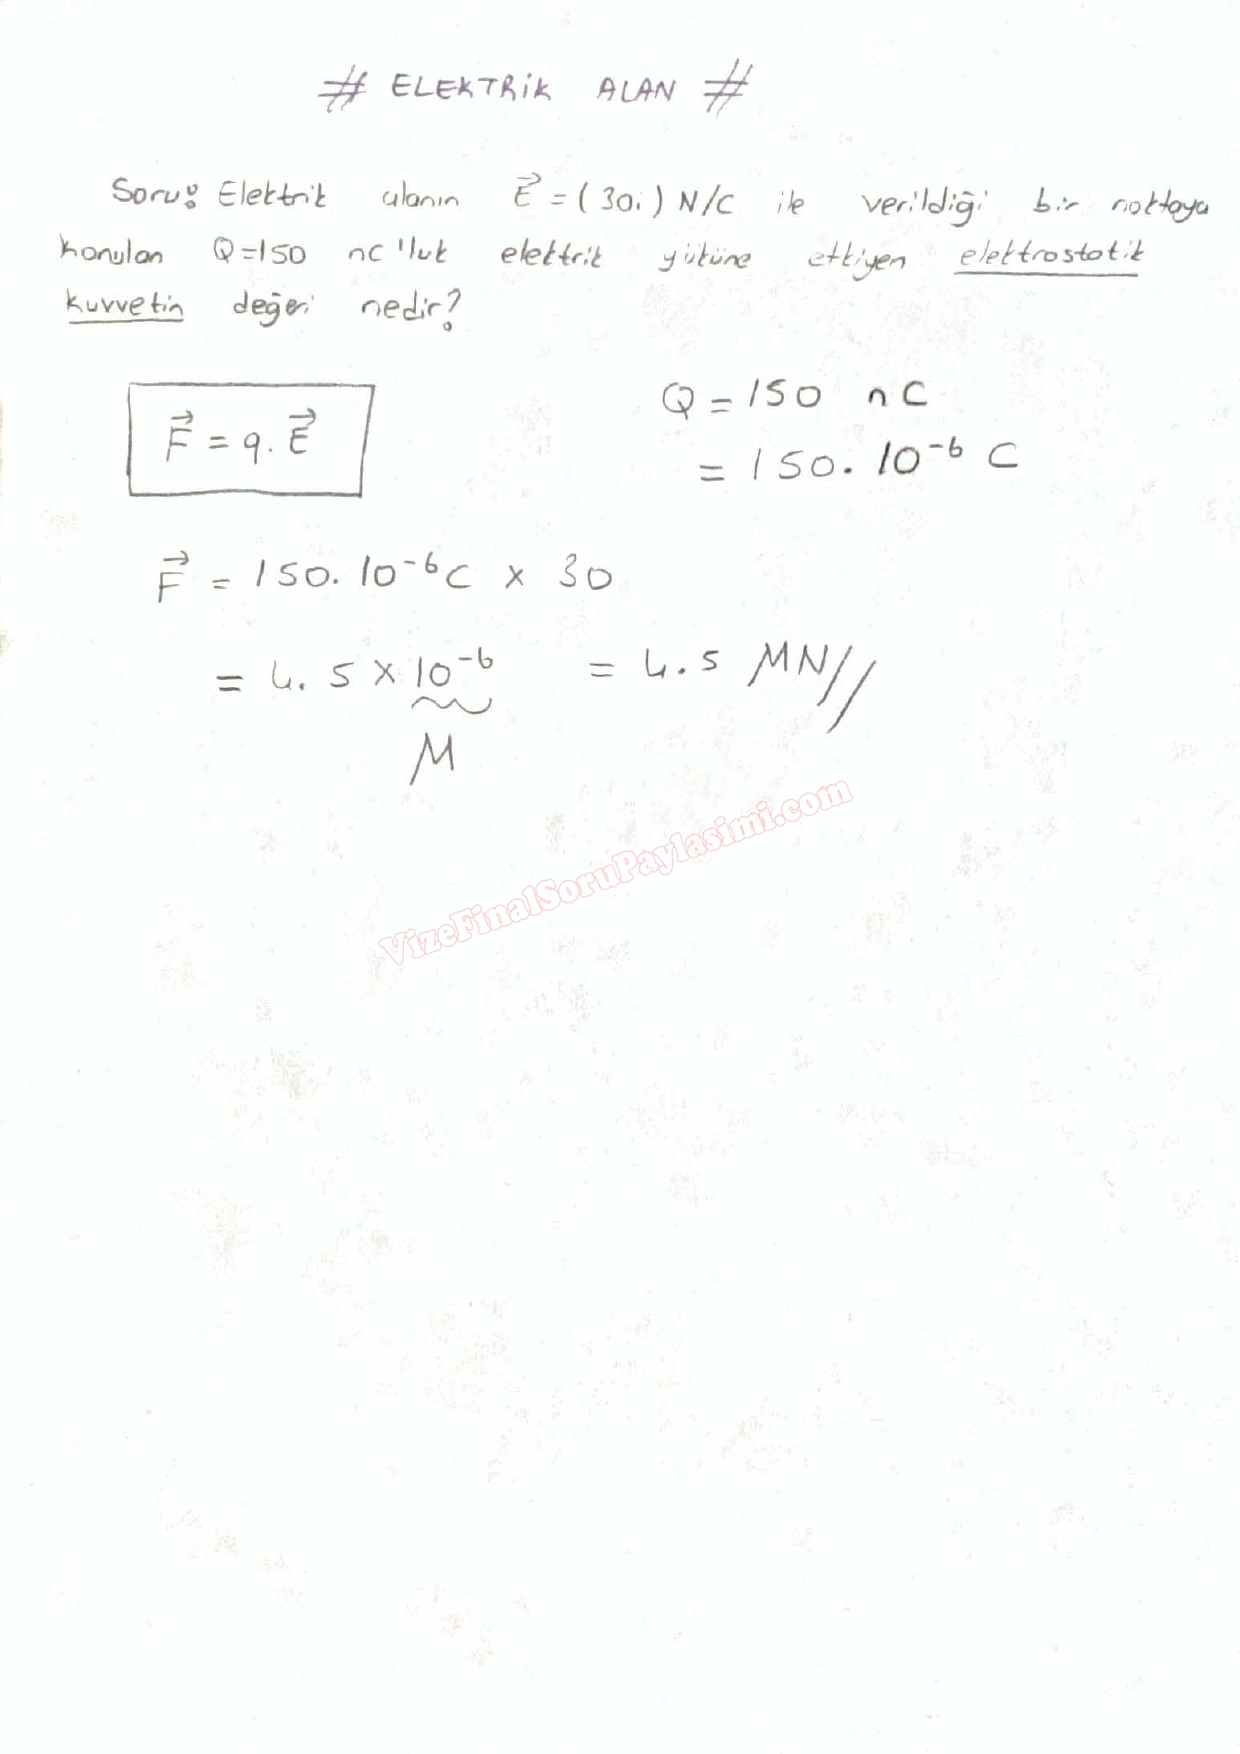 # ELEKTRİK ALAN #
Soru: Elektrik alanın E⃗ = (30i) N/C ile verildiği bir noktaya
konulan Q=150 nC'luk elektrik yüküne etkiyen elektrostatik
kuvvetin değeri nedir?
F⃗ = q. E⃗
Q = 150 nC
= 150. 10⁻⁶ C
F⃗ = 150. 10⁻⁶C x 30
= 4.5 x 10⁻⁶ = 4.5 MN//
M
VizeFinalSoruPaylasimi.com